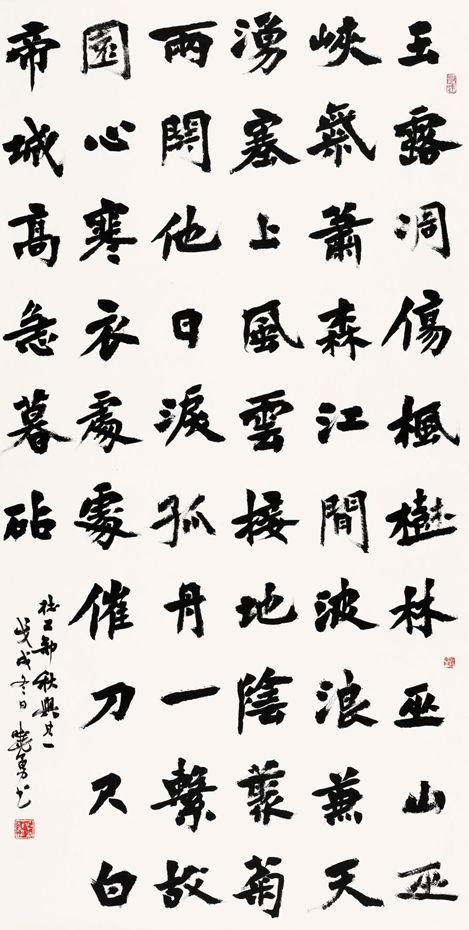 玉露凋傷楓樹林巫山巫
峽氣蕭森江間波浪兼天
湧塞上風雲接地陰叢菊
兩開他日淚孤舟一繫故
園心寒衣處處催刀尺白
帝城高急暮砧
杜工部秋興其一
戊戌冬日曉勇书